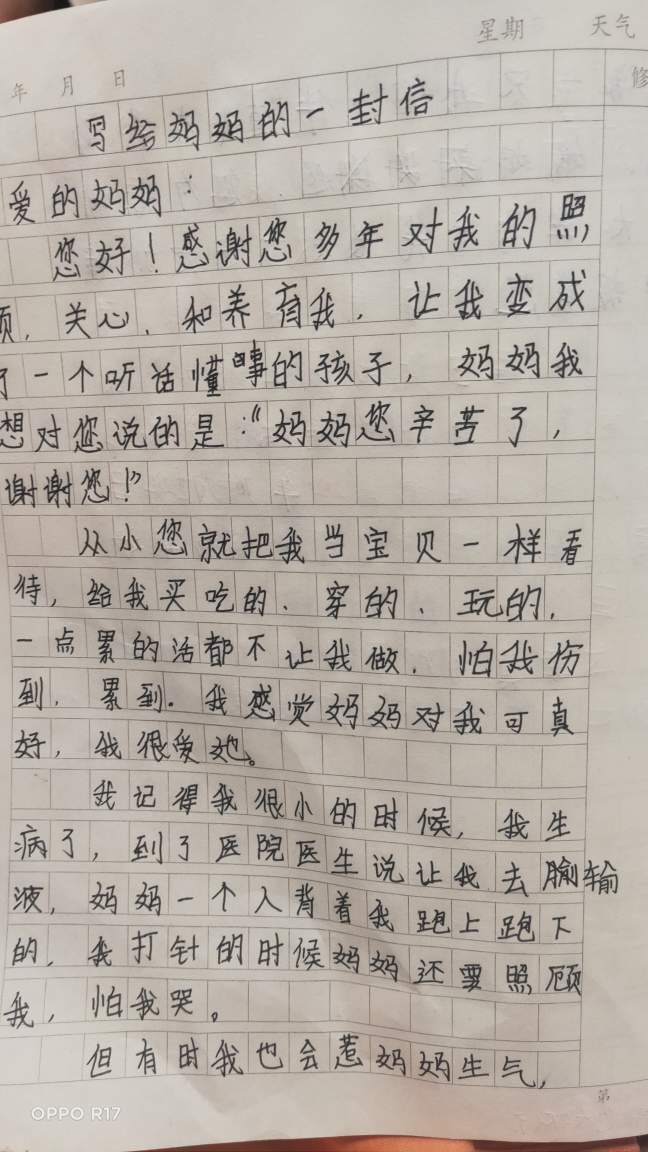 星期 天气
年 月 日
修
写给妈妈的一封信
爱的妈妈：
您好！感谢您多年对我的照
顾，关心，和养育我，让我变成
了一个听话懂事的孩子，妈妈我
想对您说的是：“妈妈您辛苦了，
谢谢您！”
从小您就把我当宝贝一样看
待，给我买吃的、穿的、玩的，
一点累的活都不让我做，怕我伤
到，累到。我感觉妈妈对我可真
好，我很爱她。
我记得我很小的时候，我生
病了，到了医院医生说让我去输
液，妈妈一个人背着我跑上跑下
的，我打针的时候妈妈还要照顾
我，怕我哭。
但有时我也会惹妈妈生气，
第
OPPO R17